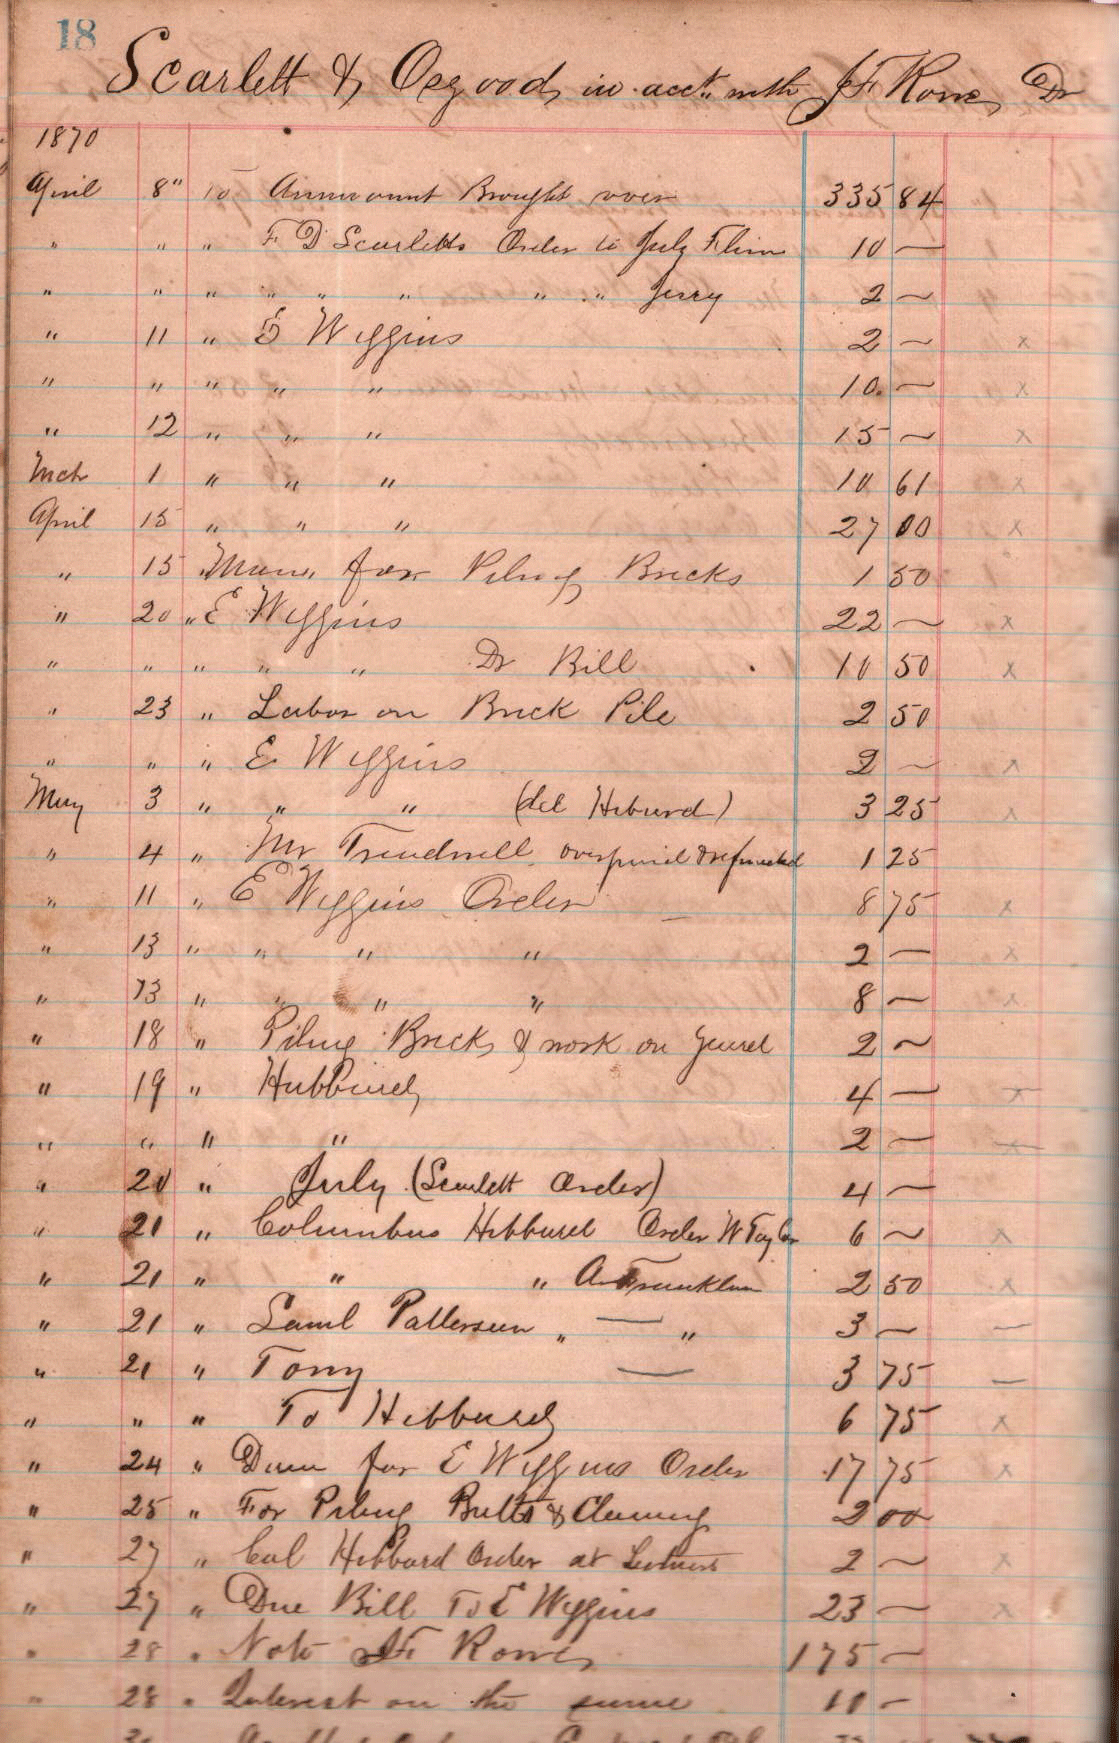 18
Scarlett & Osgood, in acct. with J F Rowe, Dr
1870
April 8" To Ammount Brought over 335 84
" " " F D Scarletts Order to July Flinn 10 —
" " " " " " " " Jerry 2 —
" 11 " E Wiggins 2 — x
" " " " " 10 — x
" 12 " " " 15 — x
Mch 1 " " " 10 61 x
April 15 " " " 27 00 x
" 15 " for Piling Bricks 1 50
" 20 " E Wiggins 22 — x
" " " " " Dr Bill 10 50 x
" 23 " Labor on Brick Pile 2 50
" " " E Wiggins 2 — x
May 3 " " " (del Hibard) 3 25 x
" 4 " Mr Treadwell overpaid & refunded 1 25
" 11 " E Wiggins Order 8 75 x
" 13 " " " " 2 — x
" 13 " " " " 8 — x
" 18 " Piling Bricks & work on yard 2 —
" 19 " Hubbard 4 — x
" " " " 2 — x
" 20 " July (Scarlett Order) 4 —
" 21 " Columbus Hibbard Order W Taylor 6 — x
" 21 " " " A Franklin 2 50 x
" 21 " Saml Patterson " — " 3 — —
" 21 " Tony — 3 75 —
" " " To Hibbard 6 75 x
" 24 " for E Wiggins Order 17 75 x
" 25 " For Piling Butts & Cleaning 2 00
" 27 " Col Hibbard Order at 2 — x
" 27 " Due Bill To E Wiggins 23 — x
" 28 " Note J F Rowe 175 —
" 28 " Interest on the same 10 —